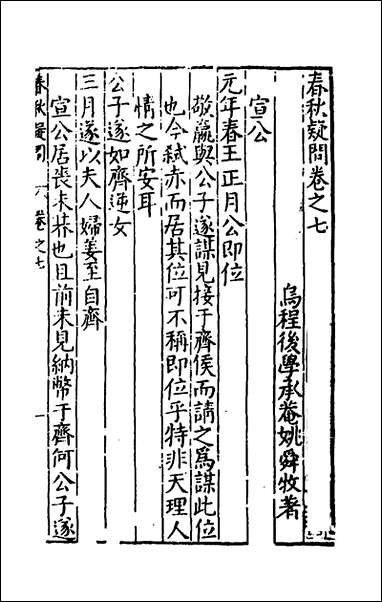 春秋疑問卷之七
烏程後學承菴姚舜牧著
宣公
元年春王正月公即位
敬嬴與公子遂謀見接于齊侯而請之爲謀此位
也今弑赤而居其位可不稱即位乎特非天理人
情之所安耳
公子遂如齊逆女
三月遂以夫人婦姜至自齊
宣公居喪未朞也且前未見納幣于齊何公子遂
春秋疑問 卷之七 一